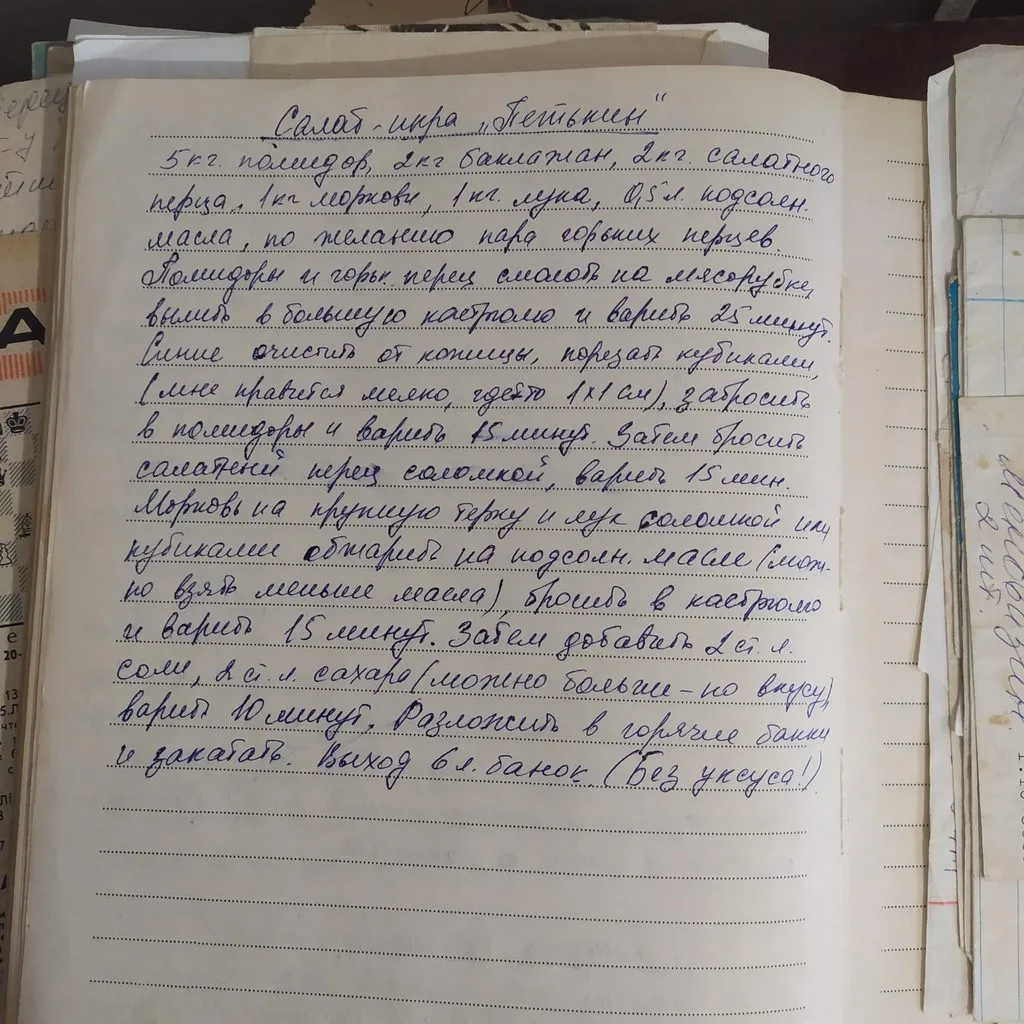 Салат-икра „Петькин"
5кг. помидор, 2кг баклажан, 2кг. салатного
перца, 1кг моркови, 1кг. лука, 0,5л. подсолн.
масла, по желанию пара горьких перцев
Помидоры и горьк. перец смолоть на мясорубке,
вылить в большую кастрюлю и варить 25 минут.
Синие очистить от кожицы, порезать кубиками,
(мне нравится мелко, где-то 1х1 см), забросить
в помидоры и варить 15 минут. Затем бросить
салатный перец соломкой, варить 15 мин.
Морковь на крупную терку и лук соломкой или
кубиками обжарить на подсолн. масле (мож-
но взять меньше масла), бросить в кастрюлю
и варить 15 минут. Затем добавить 2 ст. л.
соли, 2 ст. л. сахара (можно больше - по вкусу)
варить 10 минут. Разложить в горячие банки
и закатать. Выход 6 л. банок. (Без уксуса!)
А
е
20-
13
2 шт.